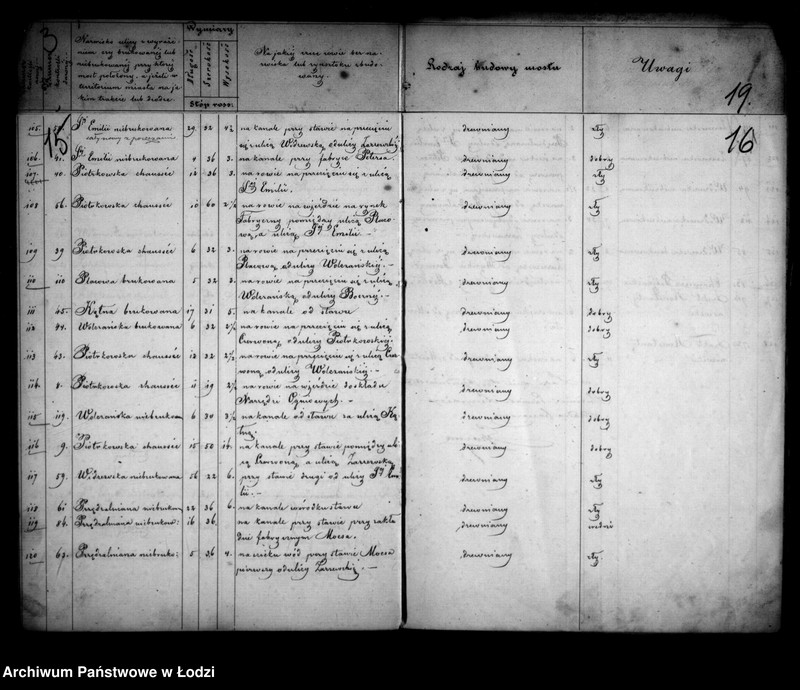 Nazwisko ulicy z wyraże-
niem czy brukowanej lub
niebrukowanej przy której
most położony, a jeżeli w
territorium miasta na ja-
kim trakcie lub drodze.
Wymiary
Długość
Szerokość
Wysokość
Stóp ross:
Na jakiej rzece rowie ber na-
zwiska lub rynsztoku zbudo-
wany.
Rodzaj budowy mostu
Uwagi
19.
15
16
105. Sej Emilii niebrukowana 29 32 4½ na kanale przy stawie na przecięciu drewniany zły
się z ulicą Widzewską od ulicy Zarzewskiej
106. 41. Sej Emilii niebrukowana 4 36 3. na kanale przy fabryce Petersa. drewniany dobry
107. 40. Piotrkowska chaussée 12 36 3. na rowie na przecięciu się z ulicą drewniany zły
Sej Emilii.
108 56. Piotrkowska chaussée 10 60 2½ na rowie na wjeździe na rynek drewniany zły
Fabryczny pomiędzy ulicą Placo-
wą, a ulicą Sej Emilii —
109 39 Piotrkowska chaussée 6 32 3. na rowie na przecięciu się z ulicą drewniany zły
Placową od ulicy Wólczańskiej. —
110 110 Placowa brukowana 5 32 3. na rowie na przecięciu się z ulicą drewniany zły
Wólczańską od ulicy Bocznej. —
111 45. Kątna brukowana 17 31 5. na kanale od stawu drewniany dobry
112 44. Wólczańska brukowana 6 32 2½ na rowie na przecięciu się z ulicą drewniany dobry
Czerwoną od ulicy Piotrkowskiej.
113 43. Piotrkowska chaussée 12 32 2½ na rowie na przecięciu się z ulicą Czer- drewniany zły
woną od ulicy Wólczańskiej. —
114. 2. Piotrkowska chaussée 11 19 2½ na rowie na wjeździe do składu drewniany dobry
Narzędzi Ogniowych. —
115 119. Wólczańska niebrukowan 6 30 3½ na kanale od stawu za ulicą Ką- drewniany dobry
tną. —
116 9. Piotrkowska chaussée 15 50 14. na kanale przy stawie pomiędzy uli- drewniany dobry
cą Czerwoną a ulicą Zarzewską
117 59. Widzewska niebrukowana 56 22 6. przy stawie drugi od ulicy Sej Emi- drewniany zły
lii. —
118 61 Przędzalniana niebrukowan 22 36 6. na kanale wśrodku stawu drewniany zły
119 54. Przędzalniana niebrukow: 16 36. na kanale przy stawie przy zakła- drewniany średni
dzie fabrycznym Moesa.
120 63. Przędzalniana niebruko: 5 36 4. na ścieku wód przy stawie Moesa drewniany zły
pierwszy od ulicy Zarzewskiej. —
Archiwum Państwowe w Łodzi